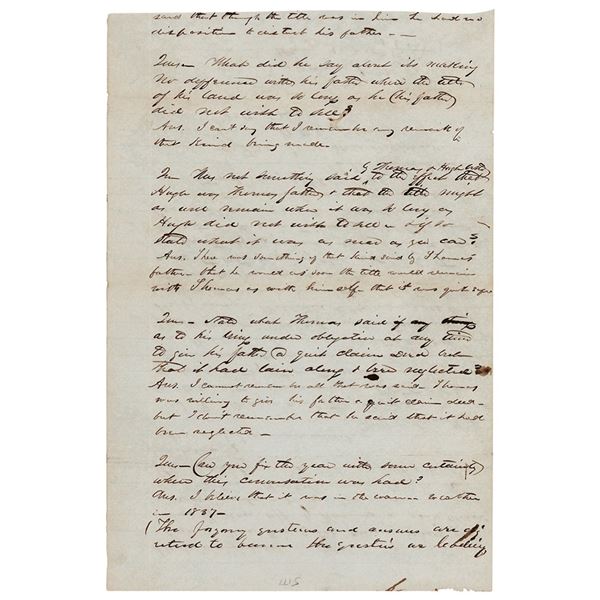 said that though the title was in him he had no
disposition to distrust his father. —
Ques — What did he say about its making
no difference with his father where the title
of his land was so long as he (his father)
did not wish to sell?
Ans. I can't say that I remember any remark of
that kind being made.
by Thomas or Hugh
Qu Was not something said to the effect that
Hugh was Thomas father & that the title might
as well remain where it was so long as
Hugh did not wish to sell — if so
state what it was as near as you can?
Ans. There was something of that kind said by Thomas's
father — that he would as soon the title would remain
with Thomas as with himself — that it was quite safe
Ques — State what Thomas said if any thing
as to his being under obligation at any time
to give his father a quit claim deed
that it had lain along & been neglected?
Ans. I cannot remember all that was said. Thomas
was willing to give his father a quit claim deed —
but I don't remember that he said that it had
been neglected —
Ques — Can you fix the year with some certainty
when this conversation was had?
Ans. I believe that it was in the warm weather
in 1837 —
(The forgoing questions and answers are
to because the questions are leading